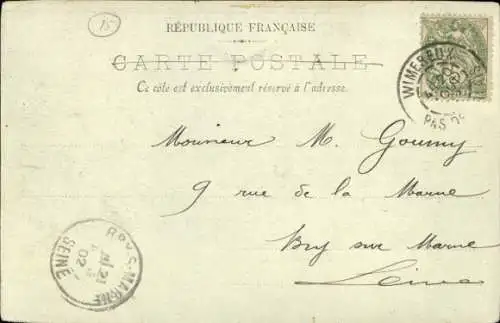 15
RÉPUBLIQUE FRANÇAISE
CARTE POSTALE
Ce côté est exclusivement réservé à l'adresse.
WIMEREUX
PAS DE
Monsieur M. Goumy
9 rue de la Marne
Bry sur Marne
Seine
BRY-S-MARNE
21
02
SEINE